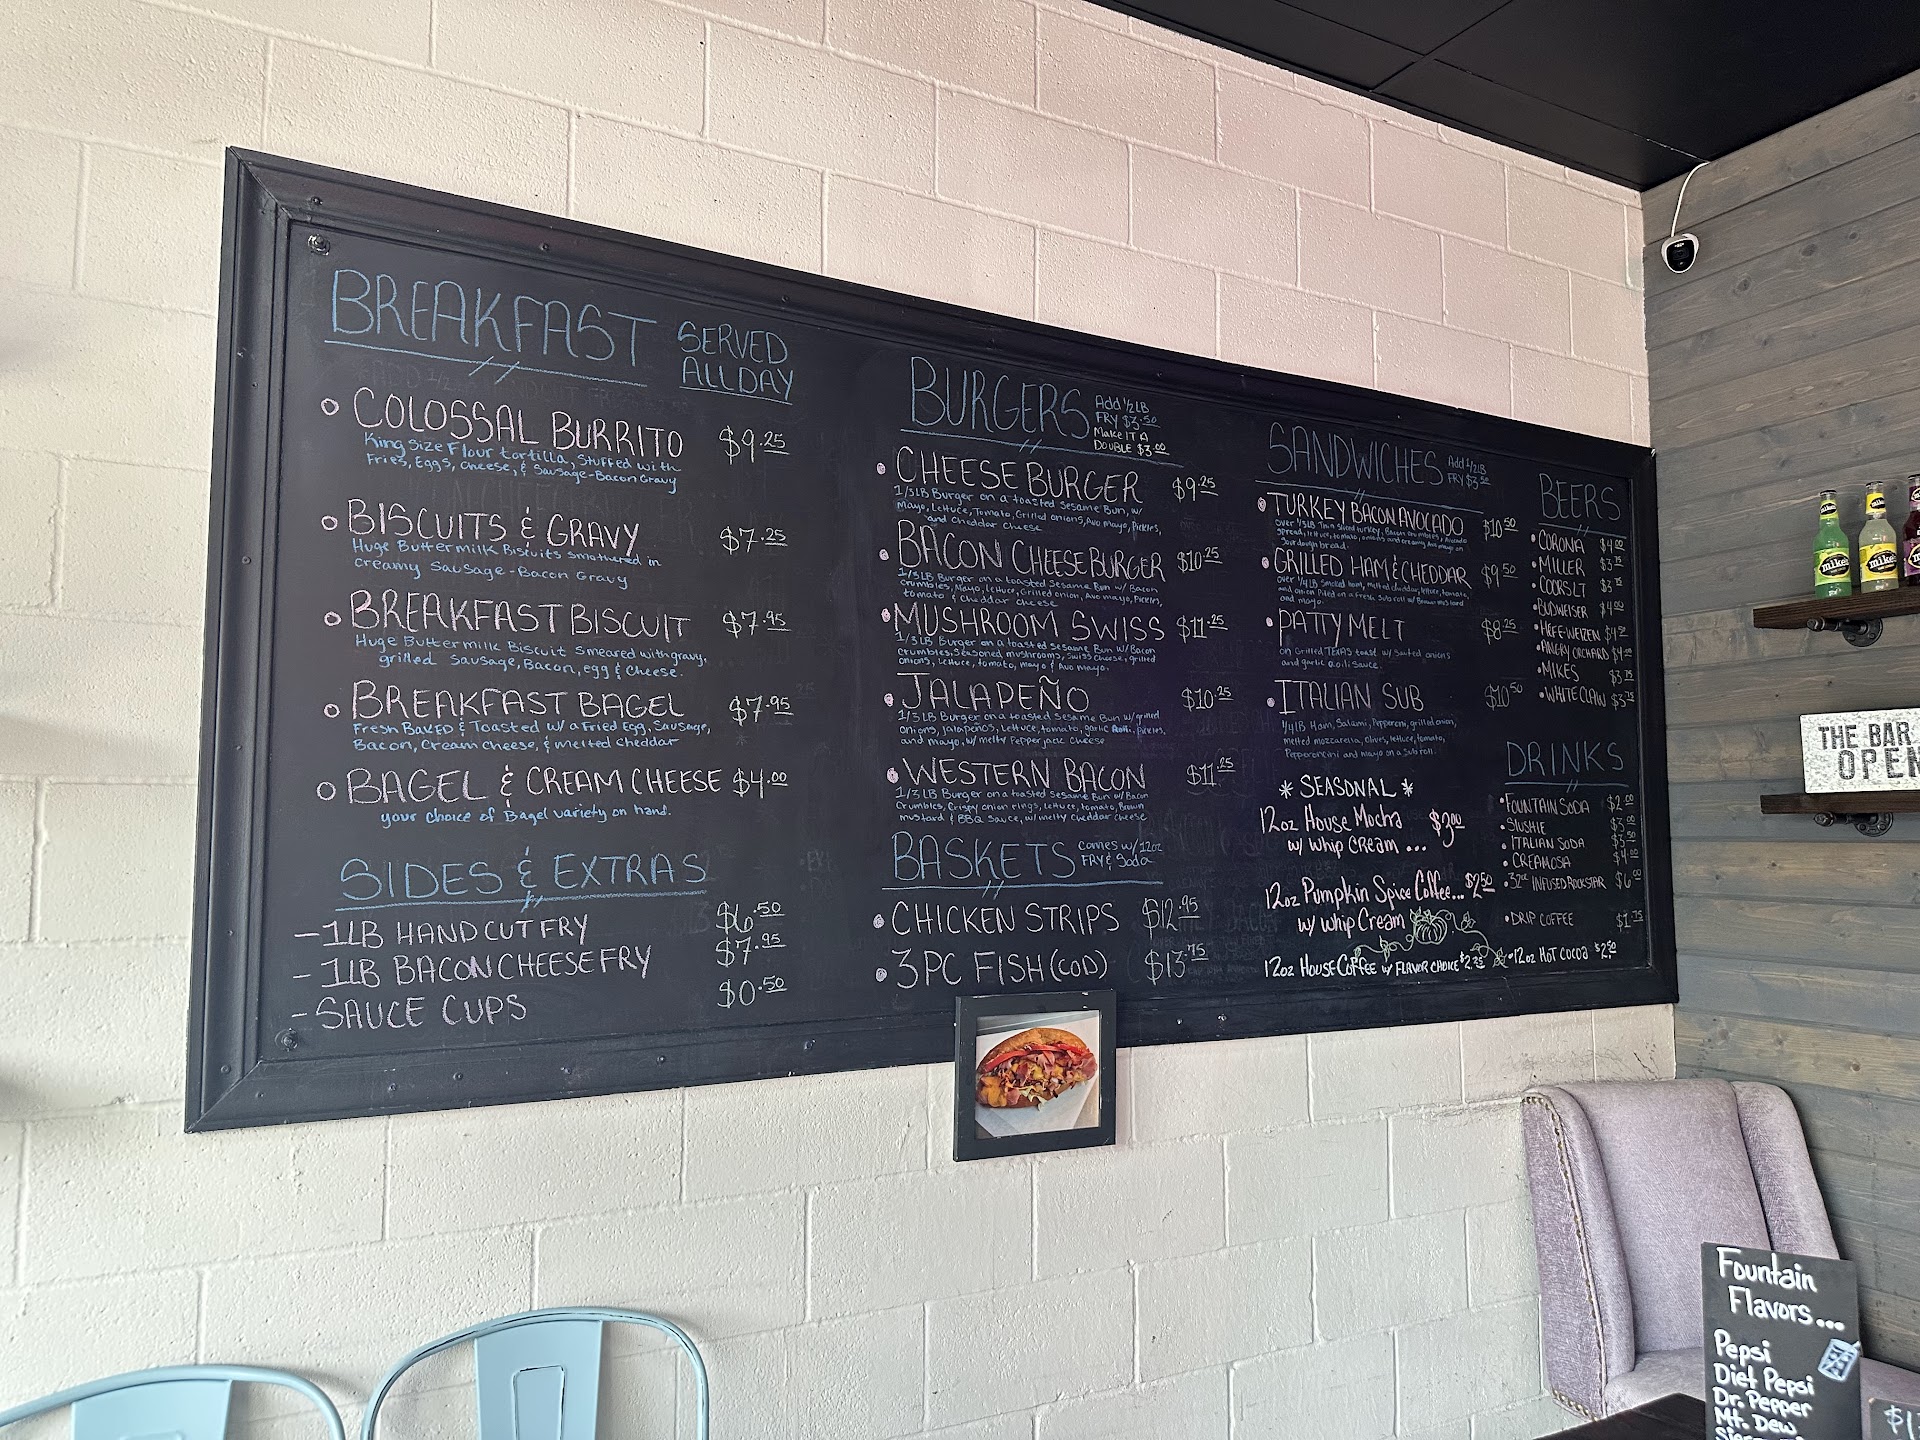 BREAKFAST SERVED
ALL DAY
COLOSSAL BURRITO $9.25
King Size Flour tortilla, Stuffed with
Fries, Eggs, Cheese, & Sausage-Bacon Gravy
BISCUITS & GRAVY $7.25
Huge Buttermilk Biscuits Smothered in
Creamy Sausage-Bacon Gravy
BREAKFAST BISCUIT $7.95
Huge Buttermilk Biscuit Smeared with gravy,
grilled Sausage, Bacon, egg & Cheese.
BREAKFAST BAGEL $7.95
Fresh BaKED & Toasted w/ a Fried Egg, Sausage,
Bacon, Cream Cheese, & melted Cheddar
BAGEL & CREAM CHEESE $4.00
your Choice of Bagel variety on hand.
SIDES & EXTRAS
- 1LB HAND CUT FRY $6.50
- 1LB BACON CHEESE FRY $7.95
- SAUCE CUPS $0.50
BURGERS
Add 1/2 LB
FRY $3.50
Make IT A
DOUBLE $3.00
CHEESE BURGER $9.25
1/3 LB Burger on a toasted Sesame Bun, w/
Mayo, Lettuce, Tomato, Grilled onions, Avo mayo, Pickles,
and Cheddar Cheese
BACON CHEESE BURGER $10.25
1/3 LB Burger on a toasted Sesame Bun w/ Bacon
Crumbles, Mayo, Lettuce, Grilled onion, Avo mayo, Pickles,
tomato & Cheddar Cheese
MUSHROOM SWISS $11.25
1/3 LB Burger on a toasted Sesame Bun w/ Bacon
Crumbles, Seasoned mushrooms, Swiss Cheese, grilled
onions, Lettuce, tomato, mayo & Avo mayo.
JALAPEÑO $10.25
1/3 LB Burger on a toasted Sesame Bun w/ grilled
onions, jalapeños, Lettuce, tomato, garlic Aoili, Pickles,
and mayo, w/ melty Pepperjack Cheese
WESTERN BACON $11.25
1/3 LB Burger on a toasted Sesame Bun w/ Bacon
Crumbles, Crispy onion rings, Lettuce, tomato, Brown
mustard & BBQ Sauce, w/ melty Cheddar Cheese
BASKETS comes w/ 12oz
FRY & Soda
CHICKEN STRIPS $12.95
3 PC FISH (COD) $13.75
SANDWICHES Add 1/2 LB
FRY $3.50
TURKEY BACON AVOCADO $10.50
over 1/3 LB Thin Sliced turkey, Bacon crumbles, Avocado
Spread, lettuce, tomato, onions and creamy Avo mayo on
Sourdough bread.
GRILLED HAM & CHEDDAR $9.50
over 1/4 LB Smoked ham, melted cheddar, lettuce, tomato,
and onion Piled on a fresh Sub roll w/ Brown mustard
and mayo.
PATTY MELT $8.25
on Grilled TEXAS toast w/ Sauted onions
and garlic aoili sauce.
ITALIAN SUB $10.50
1/4 LB Ham, Salami, Pepperoni, grilled onion,
melted mozzarella, olives, lettuce, tomato,
Pepperoncini and mayo on a Sub roll.
* SEASONAL *
12oz House Mocha $3.00
w/ whip CREAM ...
12oz Pumpkin Spice Coffee... $2.50
w/ whip Cream
12oz House Coffee w/ FLAVOR CHOICE $2.25
BEERS
CORONA $4.00
MILLER $3.75
COORS LT $3.75
BUDWEISER $4.00
HEFF-WEIZEN
ANGRY ORCHARD
MIKES $3.75
WHITE CLAW $3.75
DRINKS
FOUNTAIN SODA
SLUSHIE
ITALIAN SODA
CREAMOSA
32oz INFUSED ROCKSTAR
DRIP COFFEE $1.75
12oz HOT COCOA $2.50
mike's
mike's
THE BAR
OPEN
Fountain
Flavors...
Pepsi
Diet Pepsi
Dr. Pepper
Mt. Dew